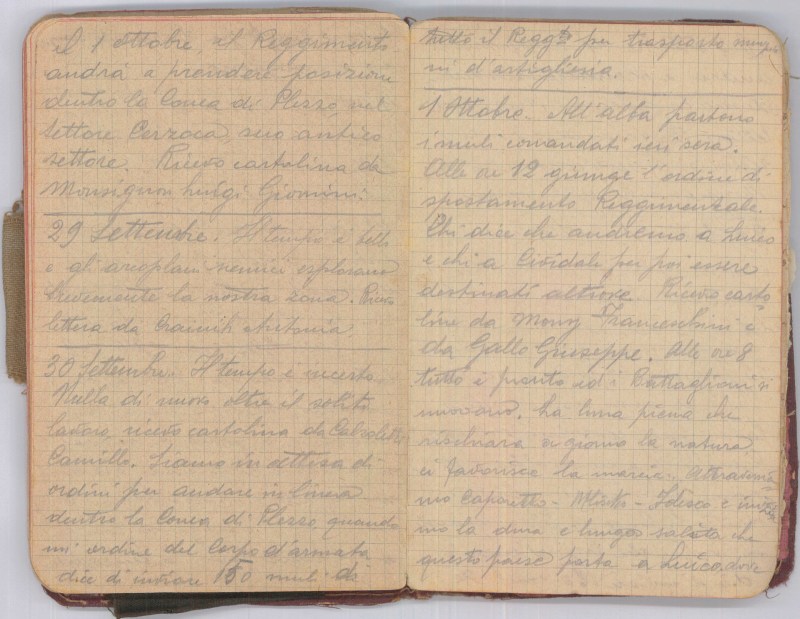 Il 1 ottobre, il Reggimento
andrà a prendere posizione
dentro la Conca di Plezzo, nel
settore Cezzoca, suo antico
settore. Ricevo cartolina da
Monsignor Luigi Giomini.
29 Settembre. Il tempo è bello
e gli areoplani nemici esplorano
brevemente la nostra zona. Ricevo
lettera da
30 Settembre. Il tempo è incerto.
Nulla di nuovo oltre il solito
lavoro, ricevo cartolina da
Camillo. Siamo in attesa di
ordini per andare in linea
dentro la Conca di Plezzo quando
un ordine del Corpo d'armata
dice di inviare 150 muli di
tutto il Regg.to per trasporto munizio
ni d'artiglieria.
1 Ottobre. All'alba partono
i muli comandati ieri sera.
Alle ore 12 giunge l'ordine di
spostamento Reggimentale.
Chi dice che andremo a Luico
e chi a Cividale per poi essere
destinati altrove. Ricevo carto
line da Mons Franceschini e
da Gallo Giuseppe. Alle ore 8
tutto è pronto ed i Battaglioni si
muovono. La luna piena che
rischiara a giorno la natura
ci favorisce la marcia. Attraversia
mo Caporetto - - Idesco e inizia
mo la dura e lunga salita che
questo paese porta a Luico, dove